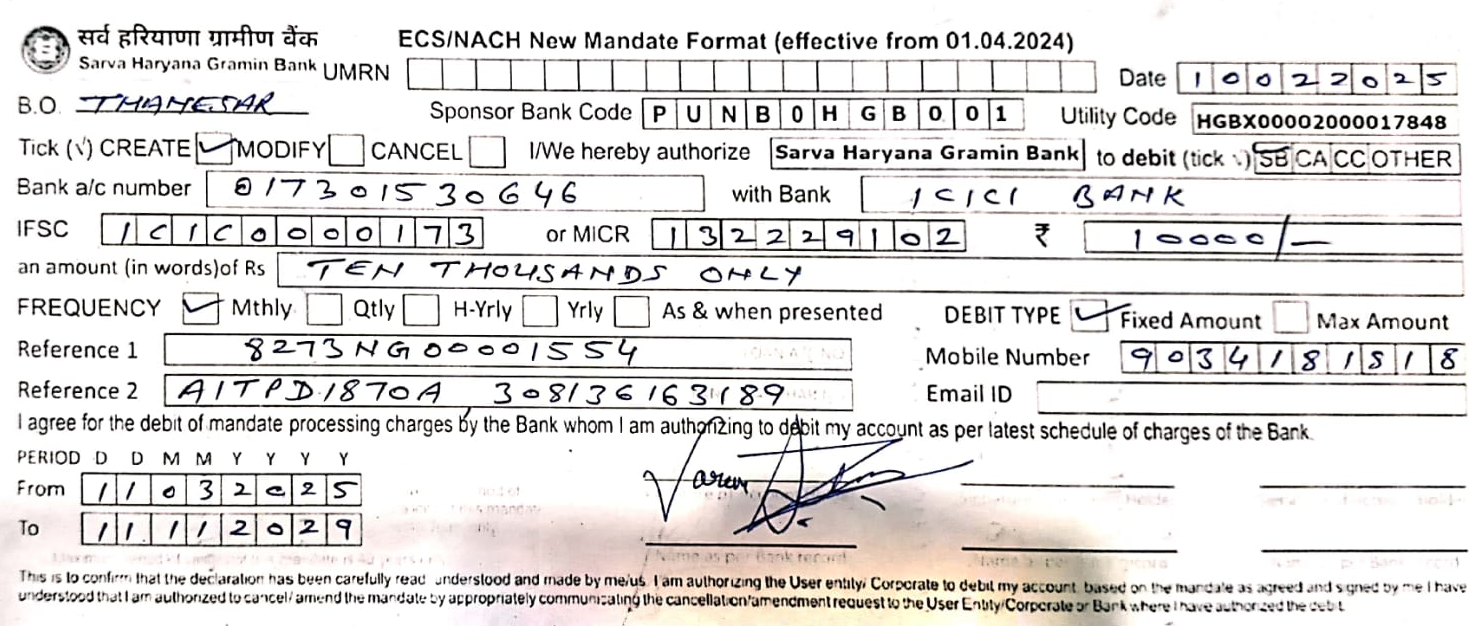 सर्व हरियाणा ग्रामीण बैंक
Sarva Haryana Gramin Bank
ECS/NACH New Mandate Format (effective from 01.04.2024)
UMRN
Date 10022025
B.O. THANESAR
Sponsor Bank Code PUNB0HGB001
Utility Code HGBX00002000017848
Tick (√) CREATE ✓ MODIFY CANCEL I/We hereby authorize Sarva Haryana Gramin Bank to debit (tick √) SB CA CC OTHER
Bank a/c number 017301530646 with Bank ICICI BANK
IFSC ICIC0000173 or MICR 132229102 ₹ 10000/-
an amount (in words)of Rs TEN THOUSANDS ONLY
FREQUENCY ✓ Mthly Qtly H-Yrly Yrly As & when presented DEBIT TYPE ✓ Fixed Amount Max Amount
Reference 1 8273NG00001554 Mobile Number 9034181518
Reference 2 AITPD1870A 308136163189 Email ID
I agree for the debit of mandate processing charges by the Bank whom I am authorizing to debit my account as per latest schedule of charges of the Bank.
PERIOD D D M M Y Y Y Y
From 11032025
To 11112029
Varun
Name as per Bank record
This is to confirm that the declaration has been carefully read understood and made by me/us. I am authorizing the User entity/ Corporate to debit my account based on the mandate as agreed and signed by me I have
understood that I am authorized to cancel/amend the mandate by appropriately communicating the cancellation/amendment request to the User Entity/Corporate or Bank where I have authorized the debit